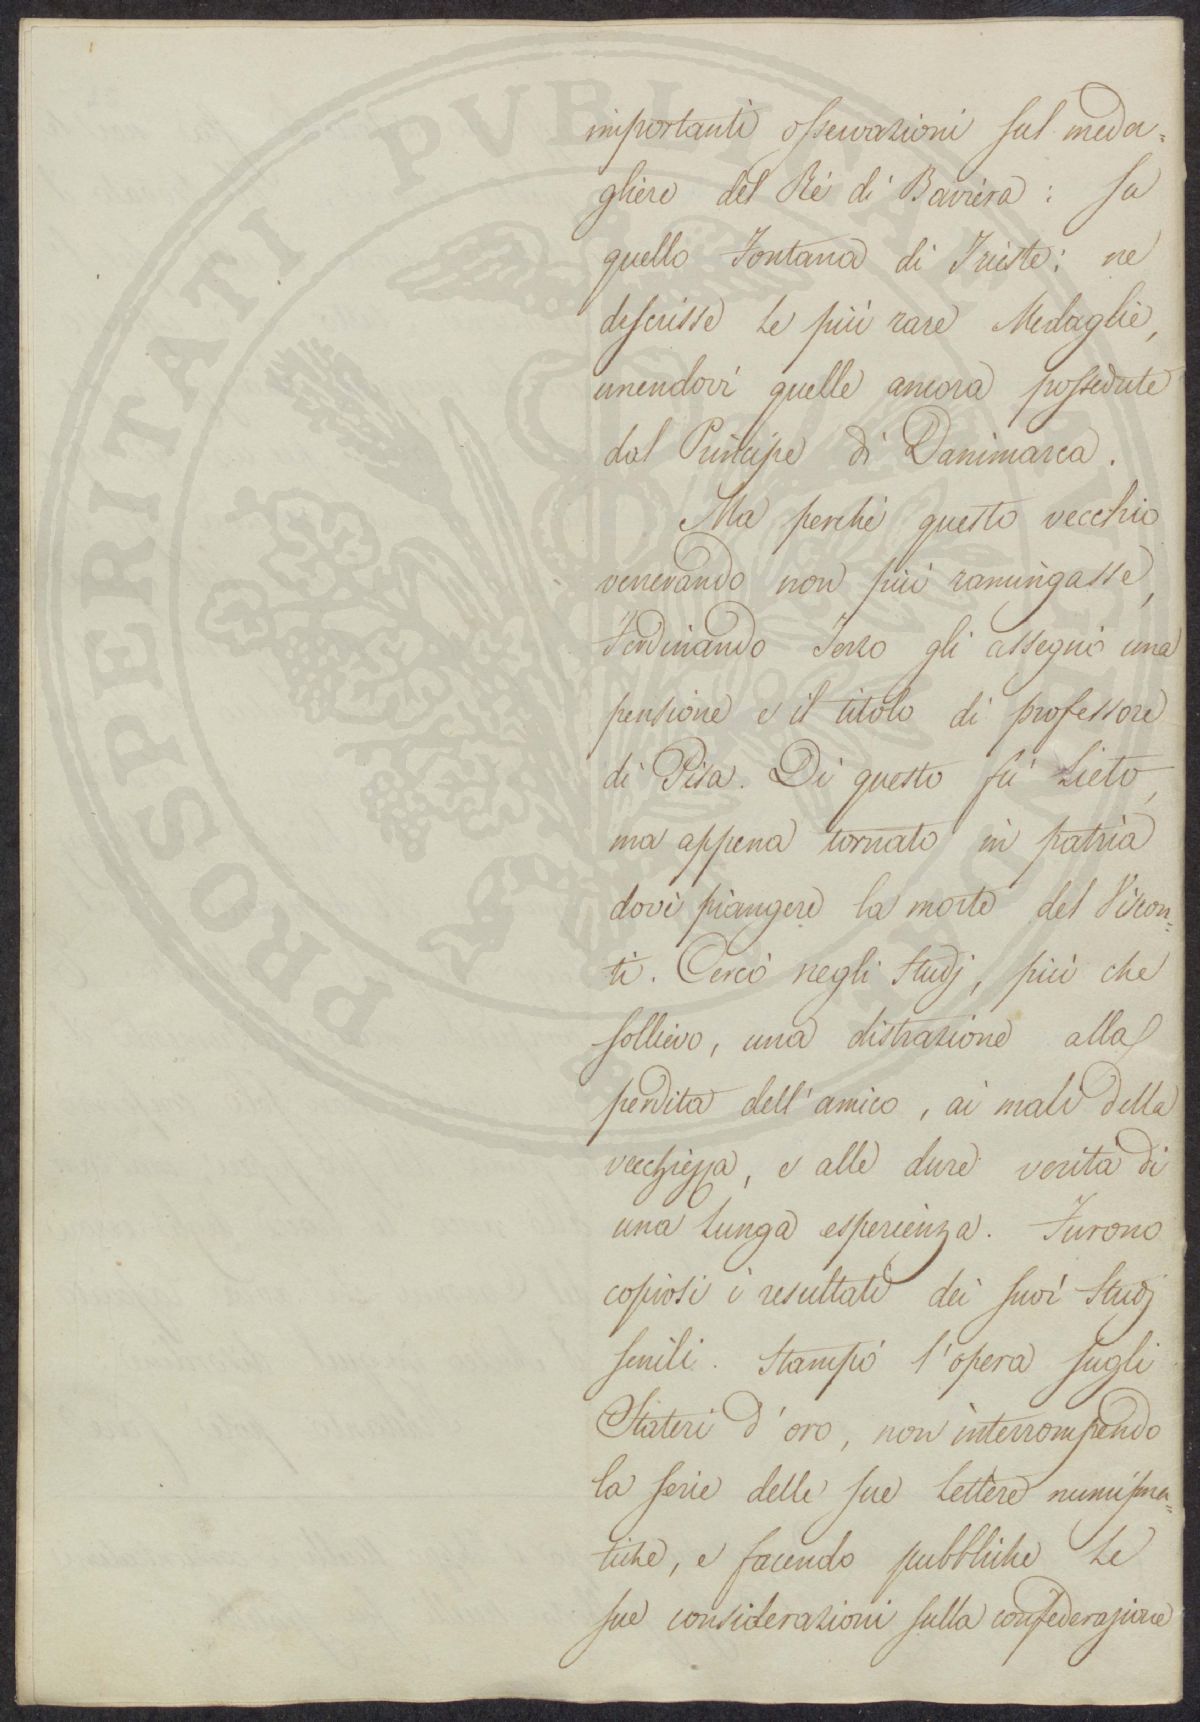 importanti osservazioni sul meda=
gliere del Ré di Baviera: su
quello Fontana di Trieste: ne
descrisse le più rare Medaglie,
unendovi quelle ancora possedute
dal Principe di Danimarca.
Ma perché questo vecchio
venerando non più ramingasse,
Ferdinando Terzo gli assegnò una
pensione e il titolo di professore
di Pisa. Di questo fù lieto,
ma appena tornato in patria
dovè piangere la morte del Viscon=
ti. Cercò negli studj, più che
sollievo, una distrazione alla
perdita dell'amico, ai mali della
vecchiezza, e alle dure verità di
una lunga esperienza. Furono
copiosi i resultati dei suoi studj
senili. Stampò l'opera sugli
Stateri d'oro, non interrompendo
la serie delle sue lettere numisma=
tiche, e facendo pubbliche le
sue considerazioni sulla confederazione
PROSPERITATI PVBLICAE